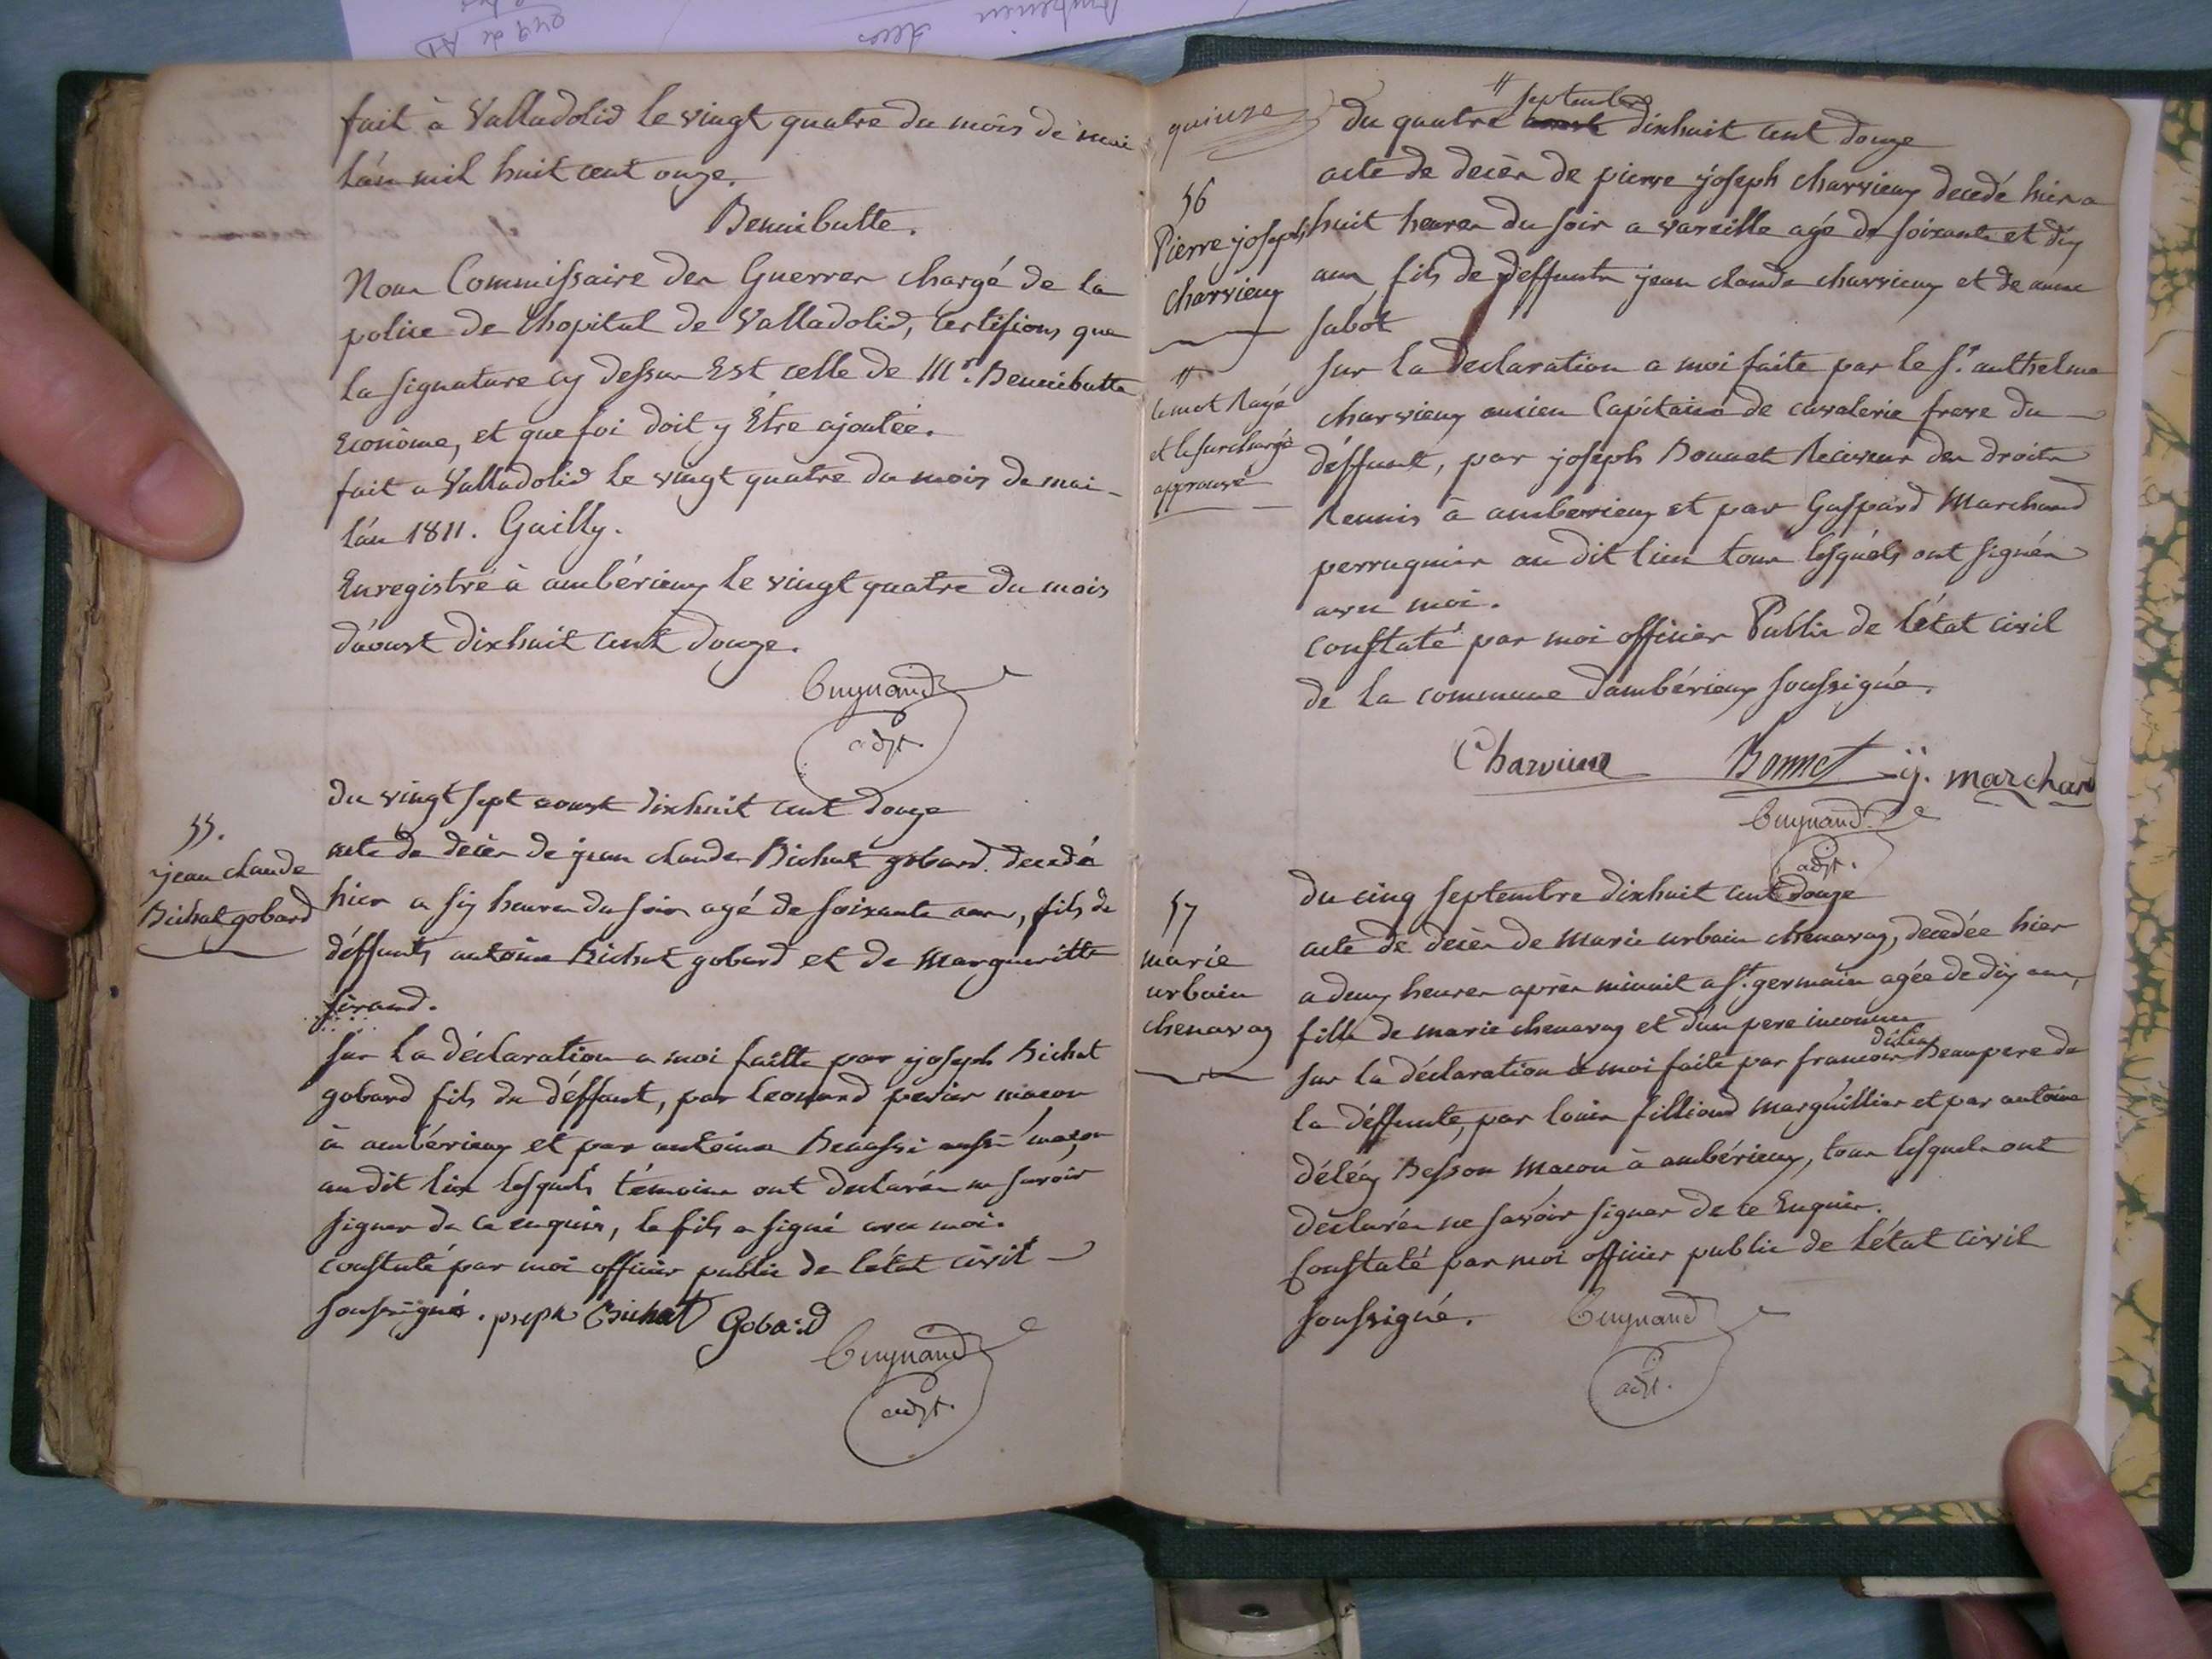 fait à Valladolid le vingt quatre du mois de mai
l'an mil huit cent onze.
Bennibutte.
Nous Commissaire des Guerres chargé de la
police de l'hopital de Valladolid, Certifions que
la signature cy dessus Est celle de Mr. Bennibutte
Econôme, et que foi doit y Être ajoutée.
fait a Valladolid le vingt quatre du mois de mai
l'an 1811. Gailly.
Enregistré à ambérieux le vingt quatre du mois
d'aoust dixhuit cent douze.
Guynand
adjt.
55.
jean claude
Bichat gobard
du vingt sept aoust dixhuit cent douze
acte de décès de jean claude Bichat gobard. decedé
hier a six heures du soir agé de soixante ans, fils de
déffunts antoine Bichat gobard et de Margueritte
sirand.
sur la déclaration a moi faitte par joseph Bichat
gobard fils du déffunt, par Leonard macon
à ambérieux et par antoine Benassi aussi maçon
au dit lieu lesquels témoins ont declarés ne savoir
signer de ce enquis, le fils a signé avec moi.
constaté par moi officier public de l'état civil
soussigné. joseph Bichat Gobard
Guynand
adjt.
quinze
du quatre aoust " septembre dixhuit cent douze
56
Pierre joseph
charvieux
"
le mot Rayé
et le surchargé
approuvé
acte de décès de pierre joseph charvieux decedé hier a
huit heures du soir a vareille agé de soixante et dix
ans, fils de deffunts jean claude charvieux et de anne
sabot
sur la declaration a moi faite par le Sr. anthelme
charvieux ancien Capitaine de cavalerie frere du
déffunt, par joseph Bonnet Receveur des droits
Reunis à amberieux et par Gaspard Marchand
perruquier au dit lieu tous lesquéls ont signés
avec moi.
constaté par moi officier Public de l'état civil
de la commune d'ambérieux soussigné.
Charvieux Bonnet g. marchand
Guynand
adjt.
57
marie
urbain
chenavax
du cinq septembre dixhuit cent douze
acte de décès de Marie urbain chenavax, decedée hier
a deux heures après minuit a St. germain agée de dix ans,
fille de marie chenavax et d'un pere inconnu
sur la déclaration à moi faite par francois Beaupere de
la déffunte, par louis fillioud Marguillier et par antoine
déléaz Besson Macon à ambérieux, tous lesquels ont
déclarés ne savoir signer de ce Enquis.
Constaté par moi officier public de l'état civil
soussigné. Guynand
adjt.